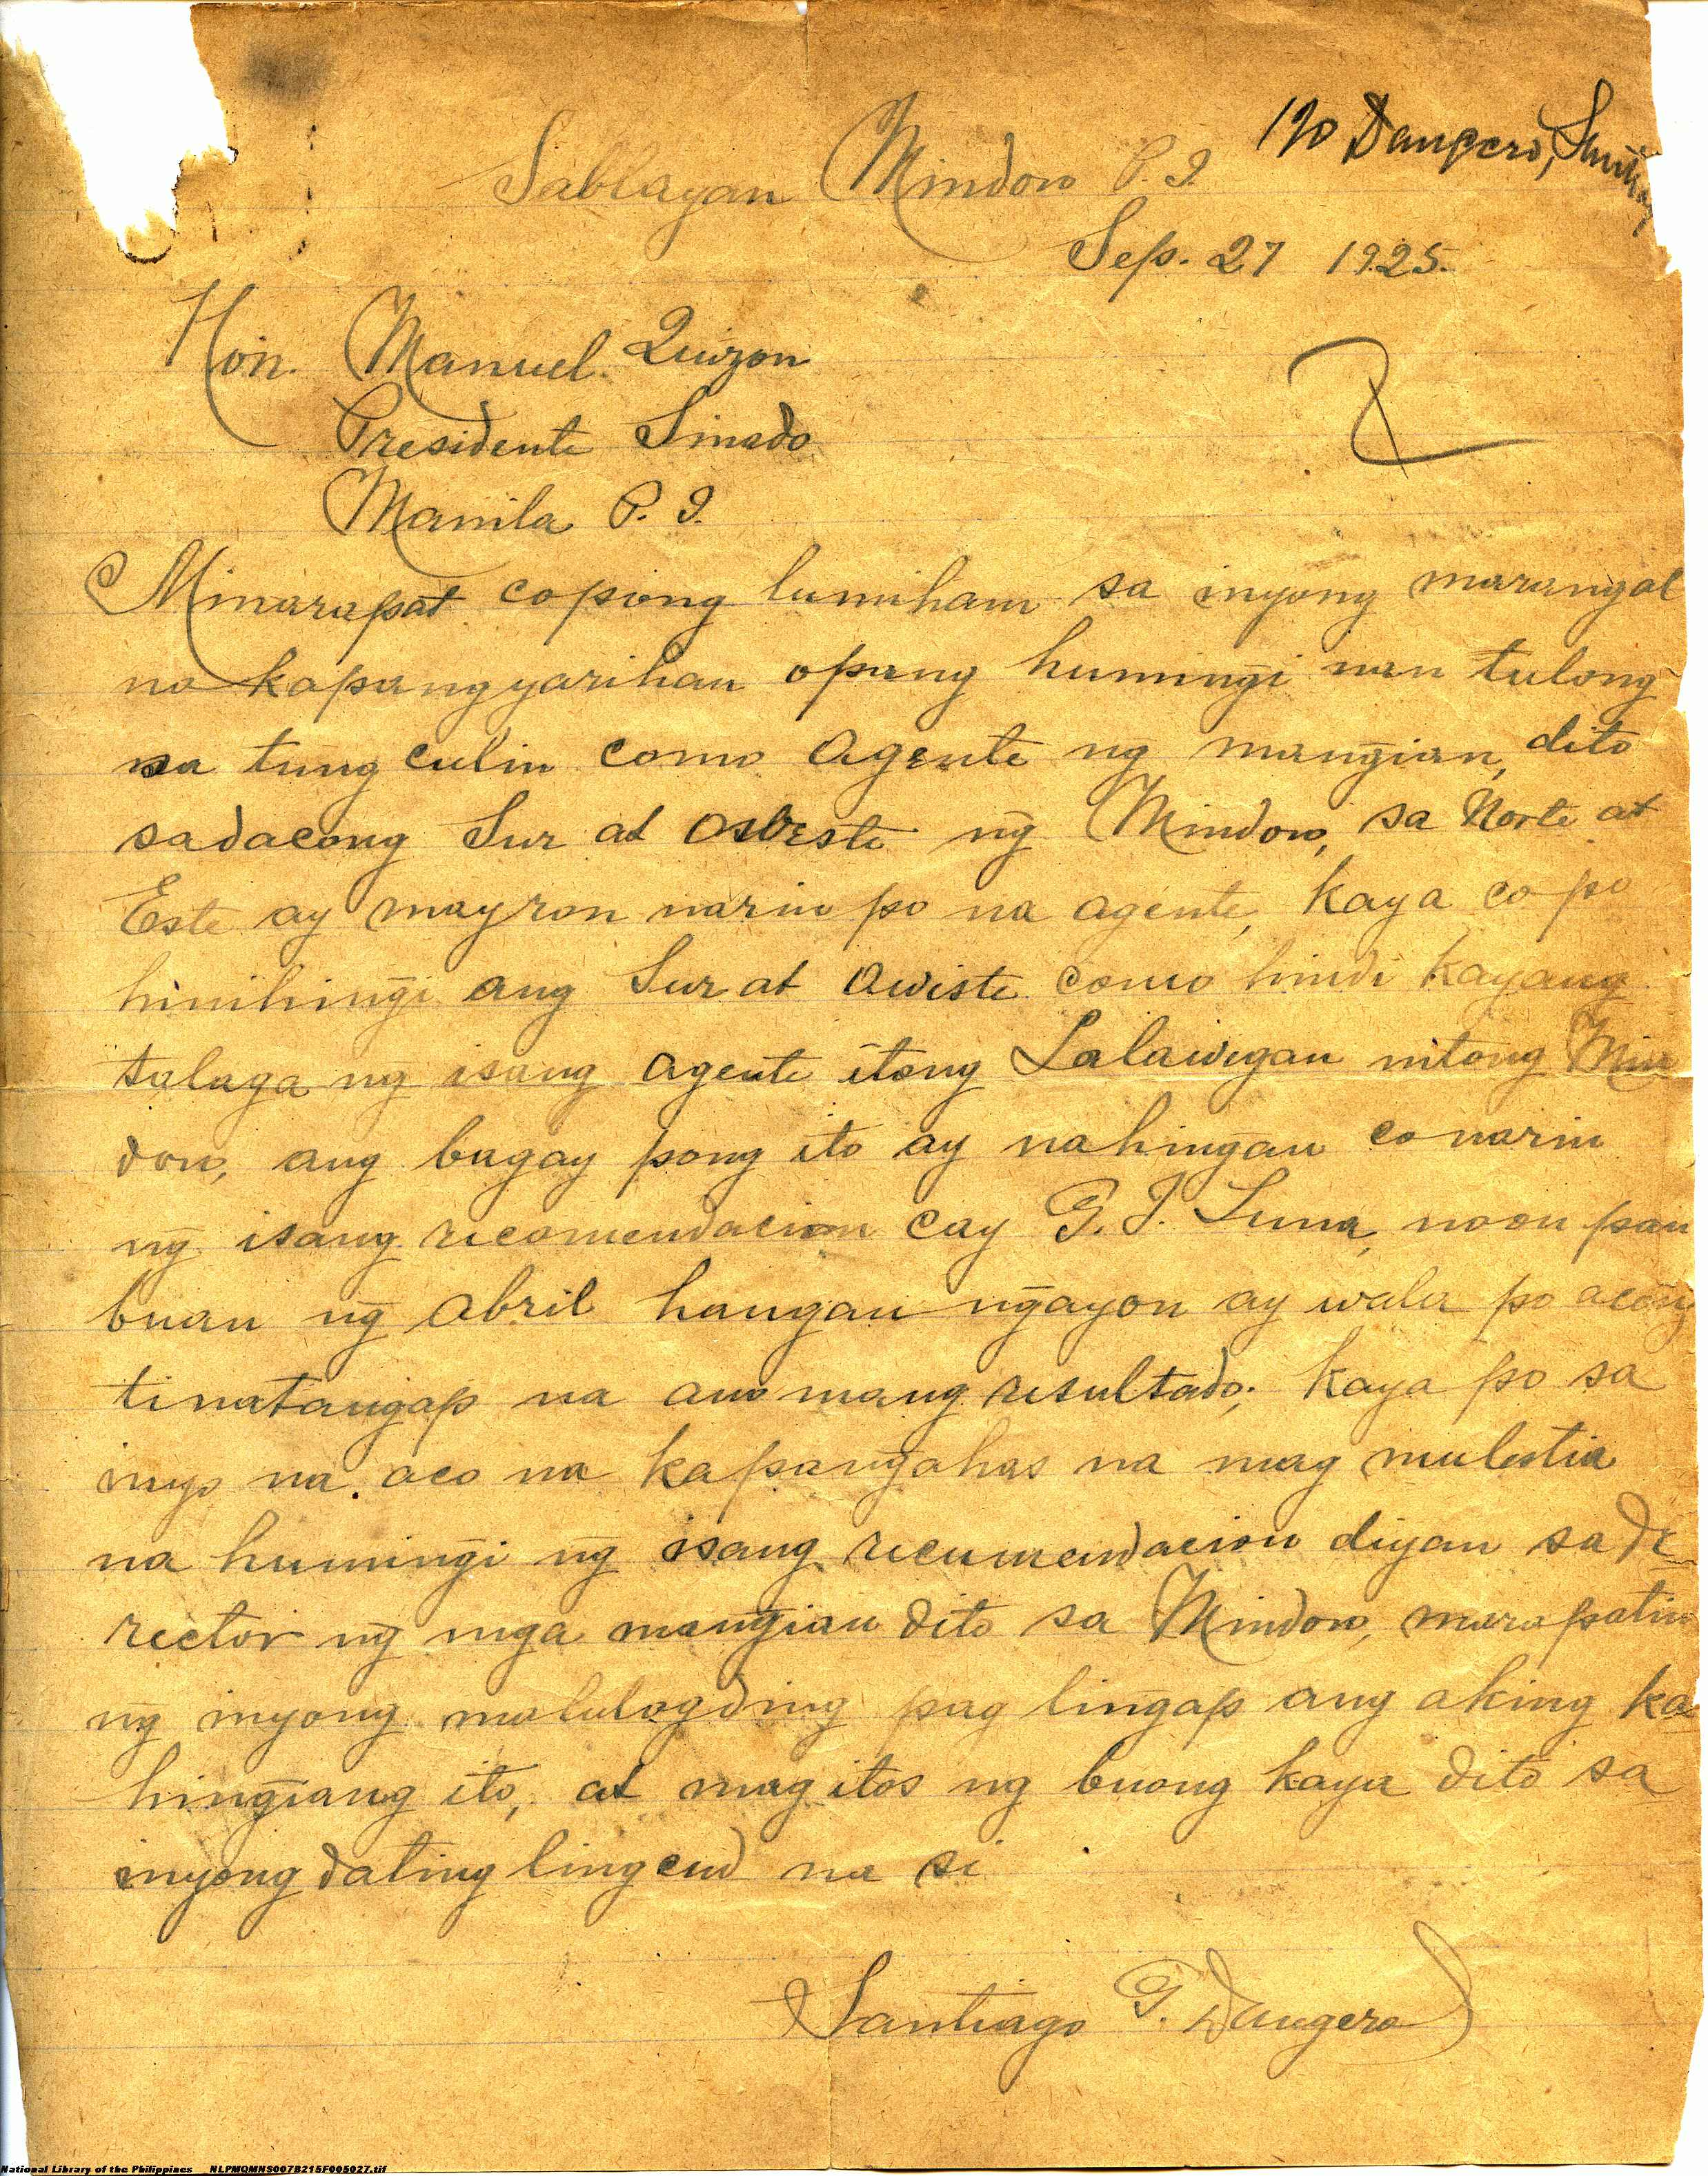 Dangero,
Sablayan Mindoro P. I.
Sep. 27 1925.
Hon. Manuel Quizon
Presidente Sinado
Manila P. I.
Minarapat copong lumiham sa inyong marangal
na kapangyarihan opang humingi nan tulong
sa tungculin como agente ng mangian, dito
sadacong Sur at Osbeste ng Mindoro, sa Norte at
Este ay mayron narin po na agente, kaya co po
hinihingi ang Sur at Owiste como hindi kayang
talaga ng isang agente itong Lalawigan nitong Min
doro, ang bagay pong ito ay nahingan co narin
ng isang recomendacion cay G. J. Luna, noon pan
buan ng Abril hangan ngayon ay wala po acong
tinatangap na ano mang resultado; kaya po sa
inyo na aco na kapangahas na mag mulestia
na humingi ng isang recumendacion diyan sa de
rector ng mga mangian dito sa Mindoro, marapatin
ng inyong malulogding pag lingap ang aking ka
hingiang ito, at mag itos ng buong kaya dito sa
inyong dating lingcud na si
Santiago G. Dangero
National Library of the Philippines NLPMQMNS007B215F005027.tif